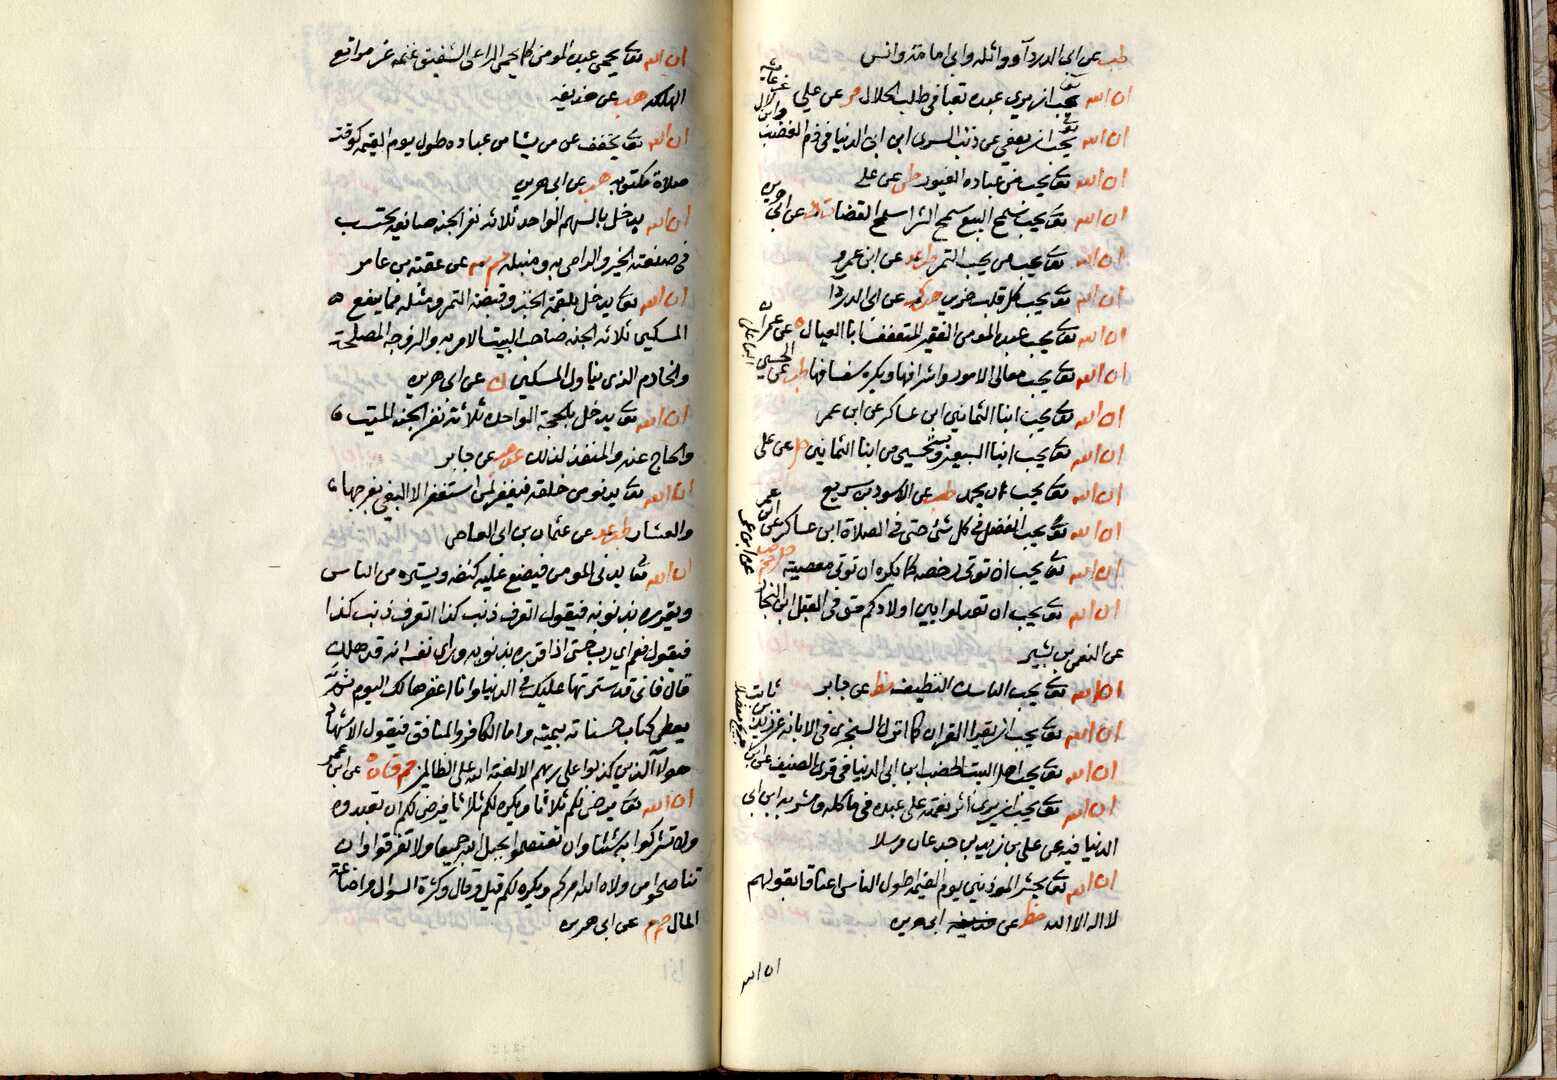 طب عن ابى الدرداء و واثله وابى امامة وانس
ان الله تعالى يحب ان يرى عبده تعبا فى طلب الحلال فر عن علي
ان الله تعالى يحب ان يعفى عن ذنب السرى ابن ابى الدنيا فى ذم الغضب وابن لال عن عائشه
ان الله تعالى يحب من عباده الغيور طس عن على
ان الله تعالى يحب سمح البيع سمح الشرا سمح القضا ت ك عن ابى هريره
ان الله تعالى يحب من يحب التمر طب عد عن ابن عمرو
ان الله تعالى يحب كل قلب حزين طب ك عن ابى الدردا
ان الله تعالى يحب عبده المومن الفقير المتعفف ابا العيال ه عن عمران
ان الله تعالى يحب معالى الامور واشرافها ويكره سفسافها طب عن الحسين ابن على
ان الله تعالى يحب ابنا الثمانين ابن عساكر عن ابن عمر
ان الله تعالى يحب ابنا السبعين ويستحيى من ابنا الثمانين حل عن على
ان الله تعالى يحب ان يحمد طب عن الاسود بن سريع
ان الله تعالى يحب الفضل فى كل شئ حتى فى الصلاة ابن عساكر عن ابن عمر
ان الله تعالى يحب ان توتى رخصه كما يكره ان توتى معصيته حم حب هب عن ابن عمر
ان الله تعالى يحب ان تعدلوا بين اولادكم حتى فى القبل ابن النجار
عن النعمن بن بشير
ان الله تعالى يحب الناسك النظيف خط عن جابر
ان الله تعالى يحب ان يقرا القران كما انزل السجزى فى الابانه عن زيد بن ثابت
ان الله تعالى يحب اهل البيت الخصب ابن ابى الدنيا فى قرى الضيف عن ابن جريج معضلا
ان الله تعالى يحب ان يرى اثر نعمته على عبده فى ماكله ومشربه ابن ابى
الدنيا فيه عن على بن زيد بن جدعان مرسلا
ان الله تعالى يحشر الموذنين يوم القيمة اطول الناس اعناقا بقولهم
لا اله الا الله خط عن ابى هريره
ان الله
ان الله تعالى يحمى عبده المومن كما يحمى الراعى الشفيق غنمه عن مراتع
الهلكه هب عن حذيفه
ان الله تعالى يخفف عن من يشا من عباده طول يوم القيمه كوقت
صلاة مكتوبه هب عن ابى هريره
ان الله يدخل بالسهم الواحد ثلاثه نفر الجنه صانعه يحتسب
فى صنعته الخير والرامى به ومنبله حم عن عقبة بن عامر
ان الله تعالى يدخل بلقمة الخبز وقبضة التمر ومثله مما ينفع
المسكين ثلاثه الجنه صاحب البيت الامر به والزوجه المصلحة
والخادم الذى يناول المسكين ك عن ابى هريره
ان الله تعالى يدخل بالحجة الواحده ثلاثة نفر الجنه الميت
والحاج عنه والمنفذ لذلك عد هب عن جابر
ان الله تعالى يدنو من خلقه فيغفر لمن استغفر الا البغى بفرجها
والعشار طب عد عن عثمان بن ابى العاص
ان الله تعالى يدنى المومن فيضع عليه كنفه ويستره من الناس
ويقرره بذنوبه فيقول اتعرف ذنب كذا اتعرف ذنب كذا
فيقول نعم اى رب حتى اذا قرره بذنوبه وراى نفسه انه قد هلك
قال فانى قد سترتها عليك فى الدنيا وانا اغفرها لك اليوم ثم
يعطى كتاب حسناته بيمينه واما الكافر والمنافق فيقول الاشهاد
هولآ الذين كذبوا على ربهم الا لعنة الله على الظالمين حم ق ن ه عن ابن عمر
ان الله تعالى يرضى لكم ثلاثا ويكره لكم ثلاثا فيرضى لكم ان تعبدوه
ولا تشركوا به شئا وان تعتصموا بحبل الله جميعا ولا تفرقوا وان
تناصحوا من ولاه الله امركم ويكره لكم قيل وقال وكثرة السوال واضاعة
المال حم م عن ابى هريره